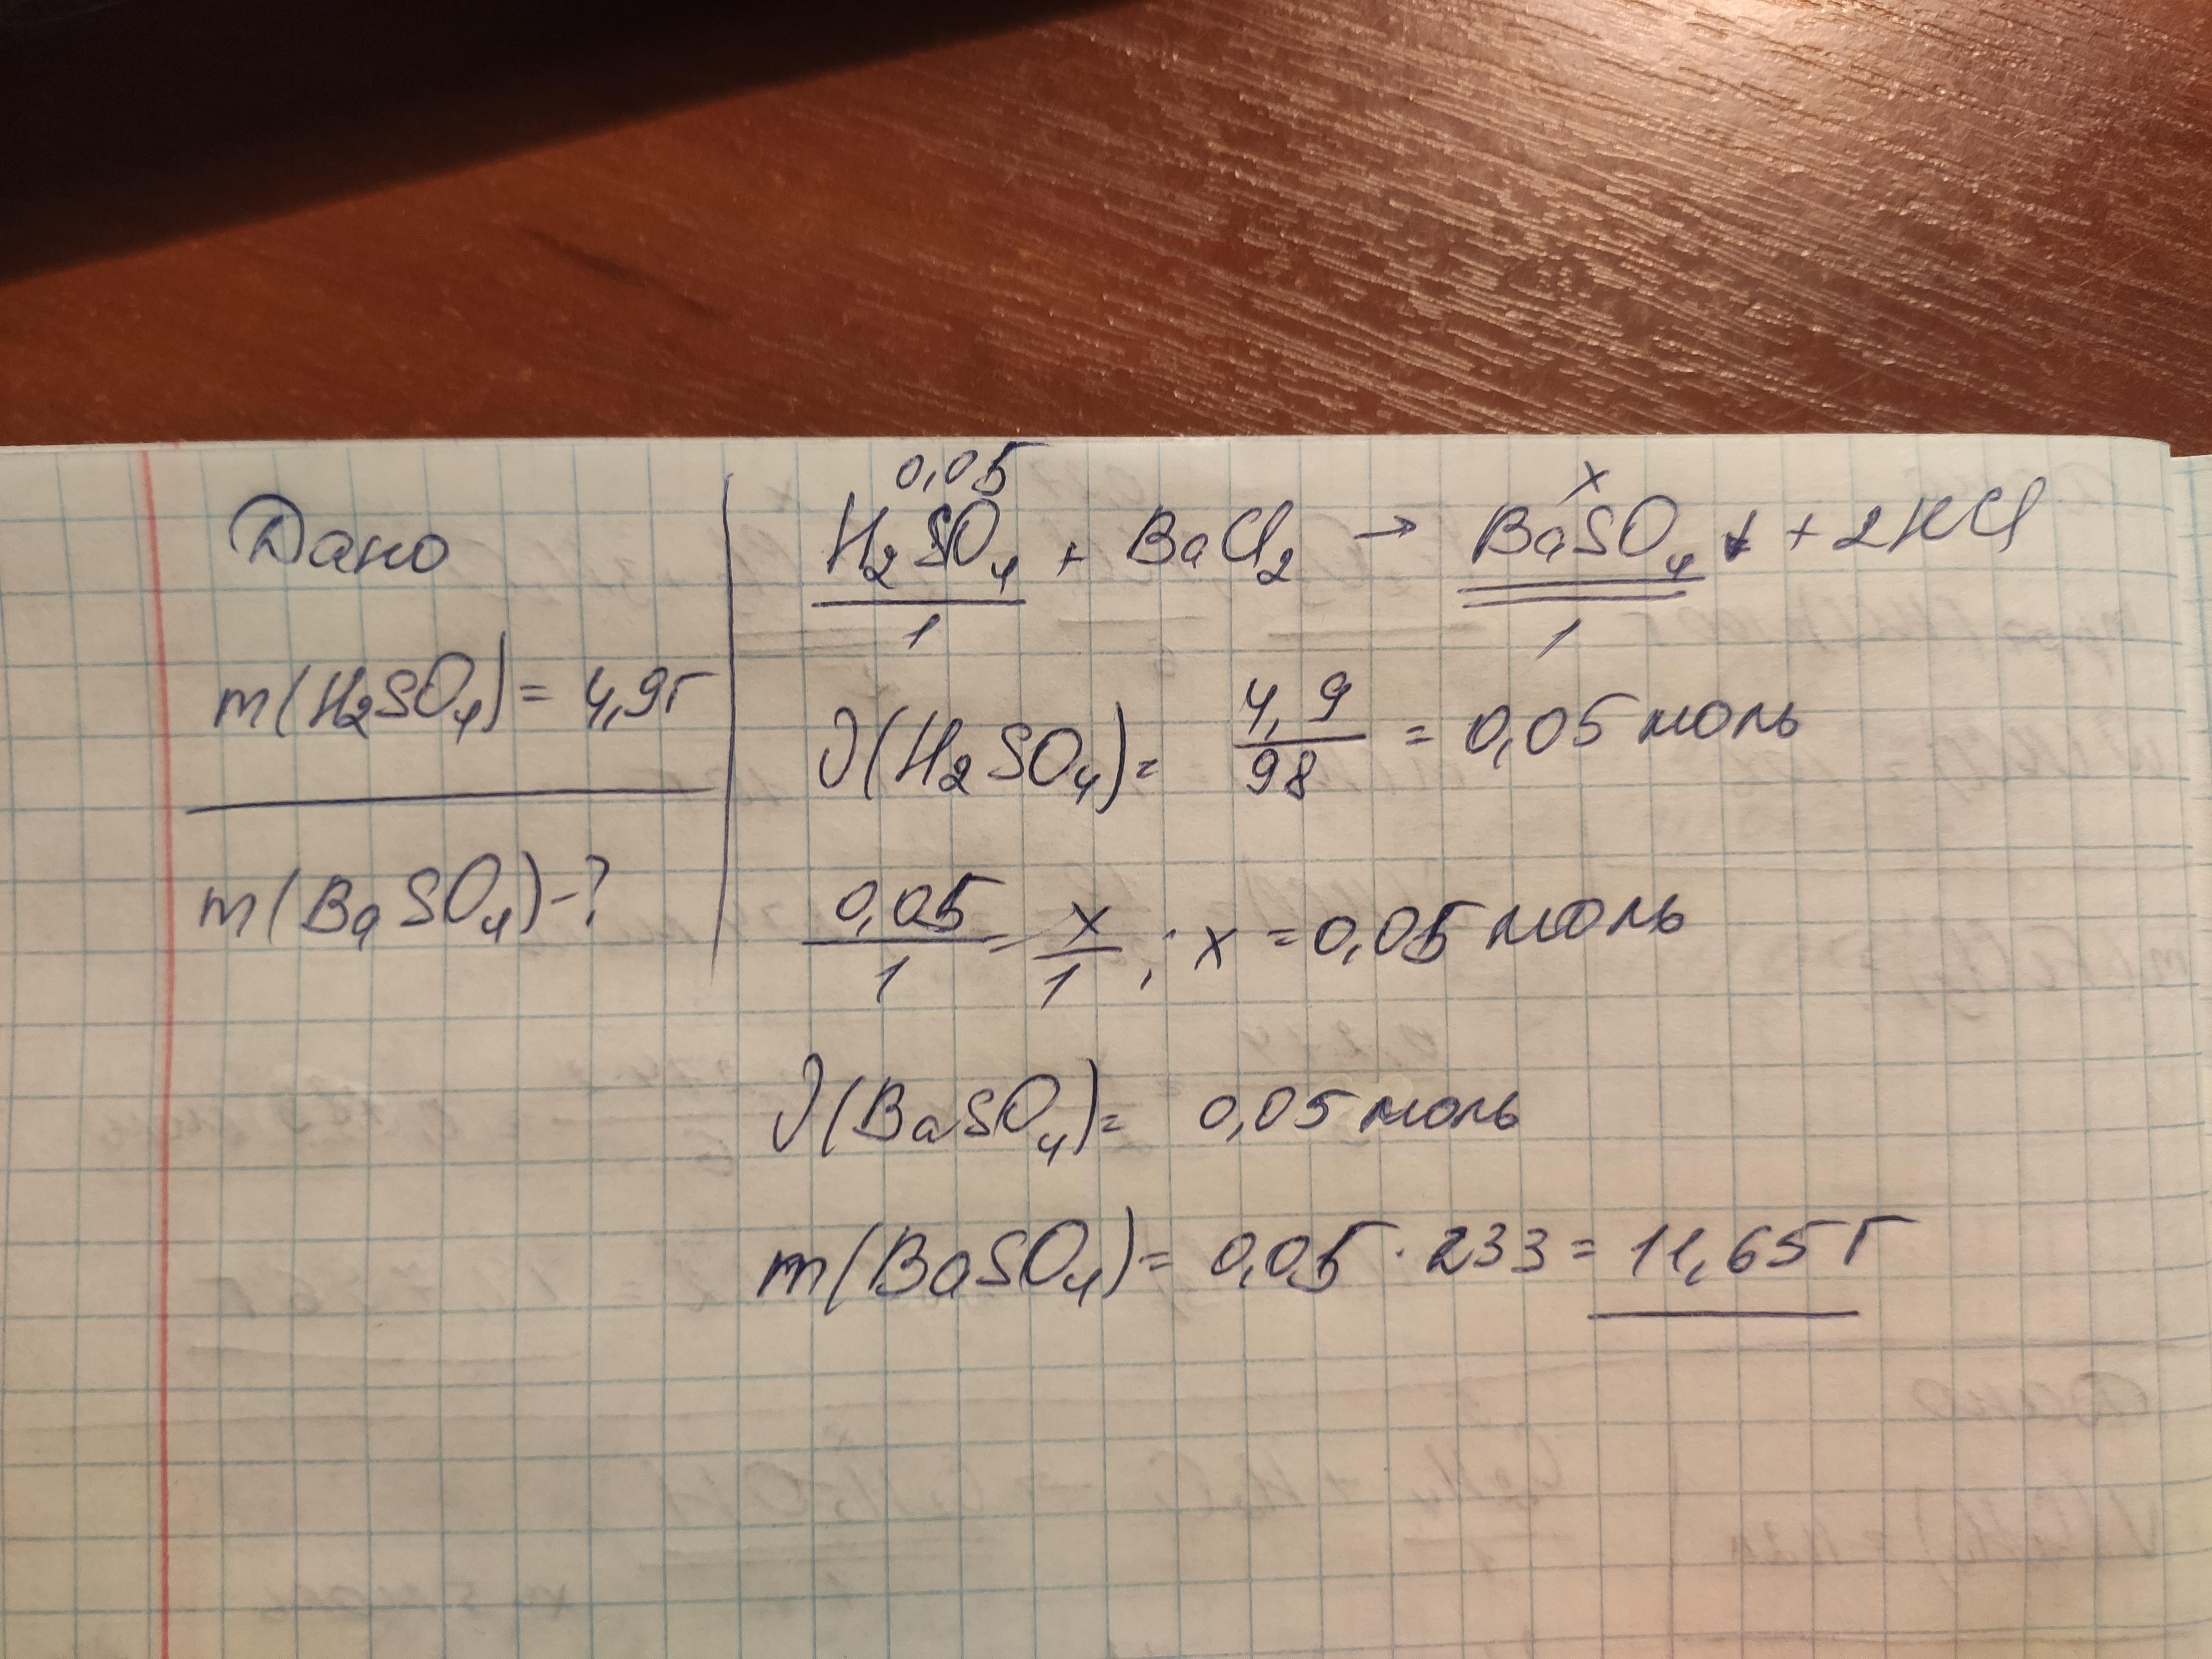 Дано
m(H2SO4) = 4,9г
m(BaSO4)-?
0,05 x
H2SO4 + BaCl2 → BaSO4↓ + 2HCl
1 1
ν(H2SO4) = 4,9/98 = 0,05 моль
0,05/1 = x/1 ; x = 0,05 моль
ν(BaSO4) = 0,05 моль
m(BaSO4) = 0,05 · 233 = 11,65 г